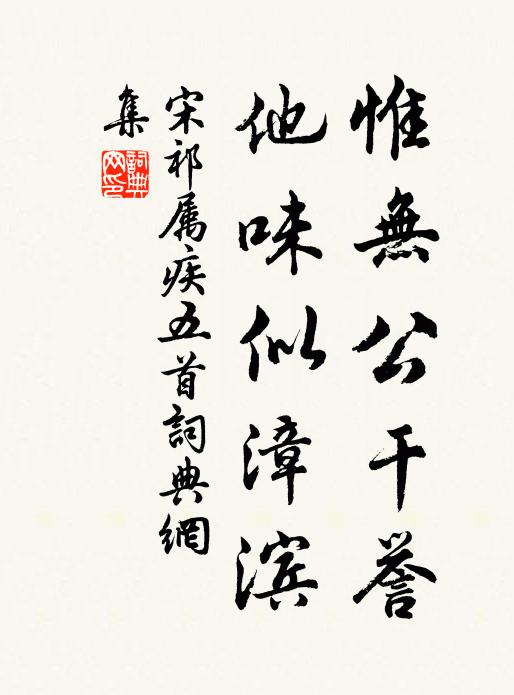 惟無公干誉
他味似漳滨
宋祁属疾五首詞典網
集
詞典网印